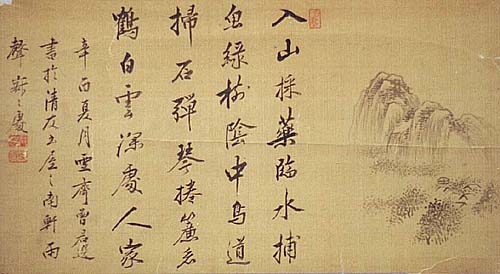 入山採藥臨水捕
魚綠樹陰中鳥道
掃石彈琴捲簾看
鶴白雲深處人家
辛酉夏月雪齊曾君
書於清友書屋之南軒雨
聲之處